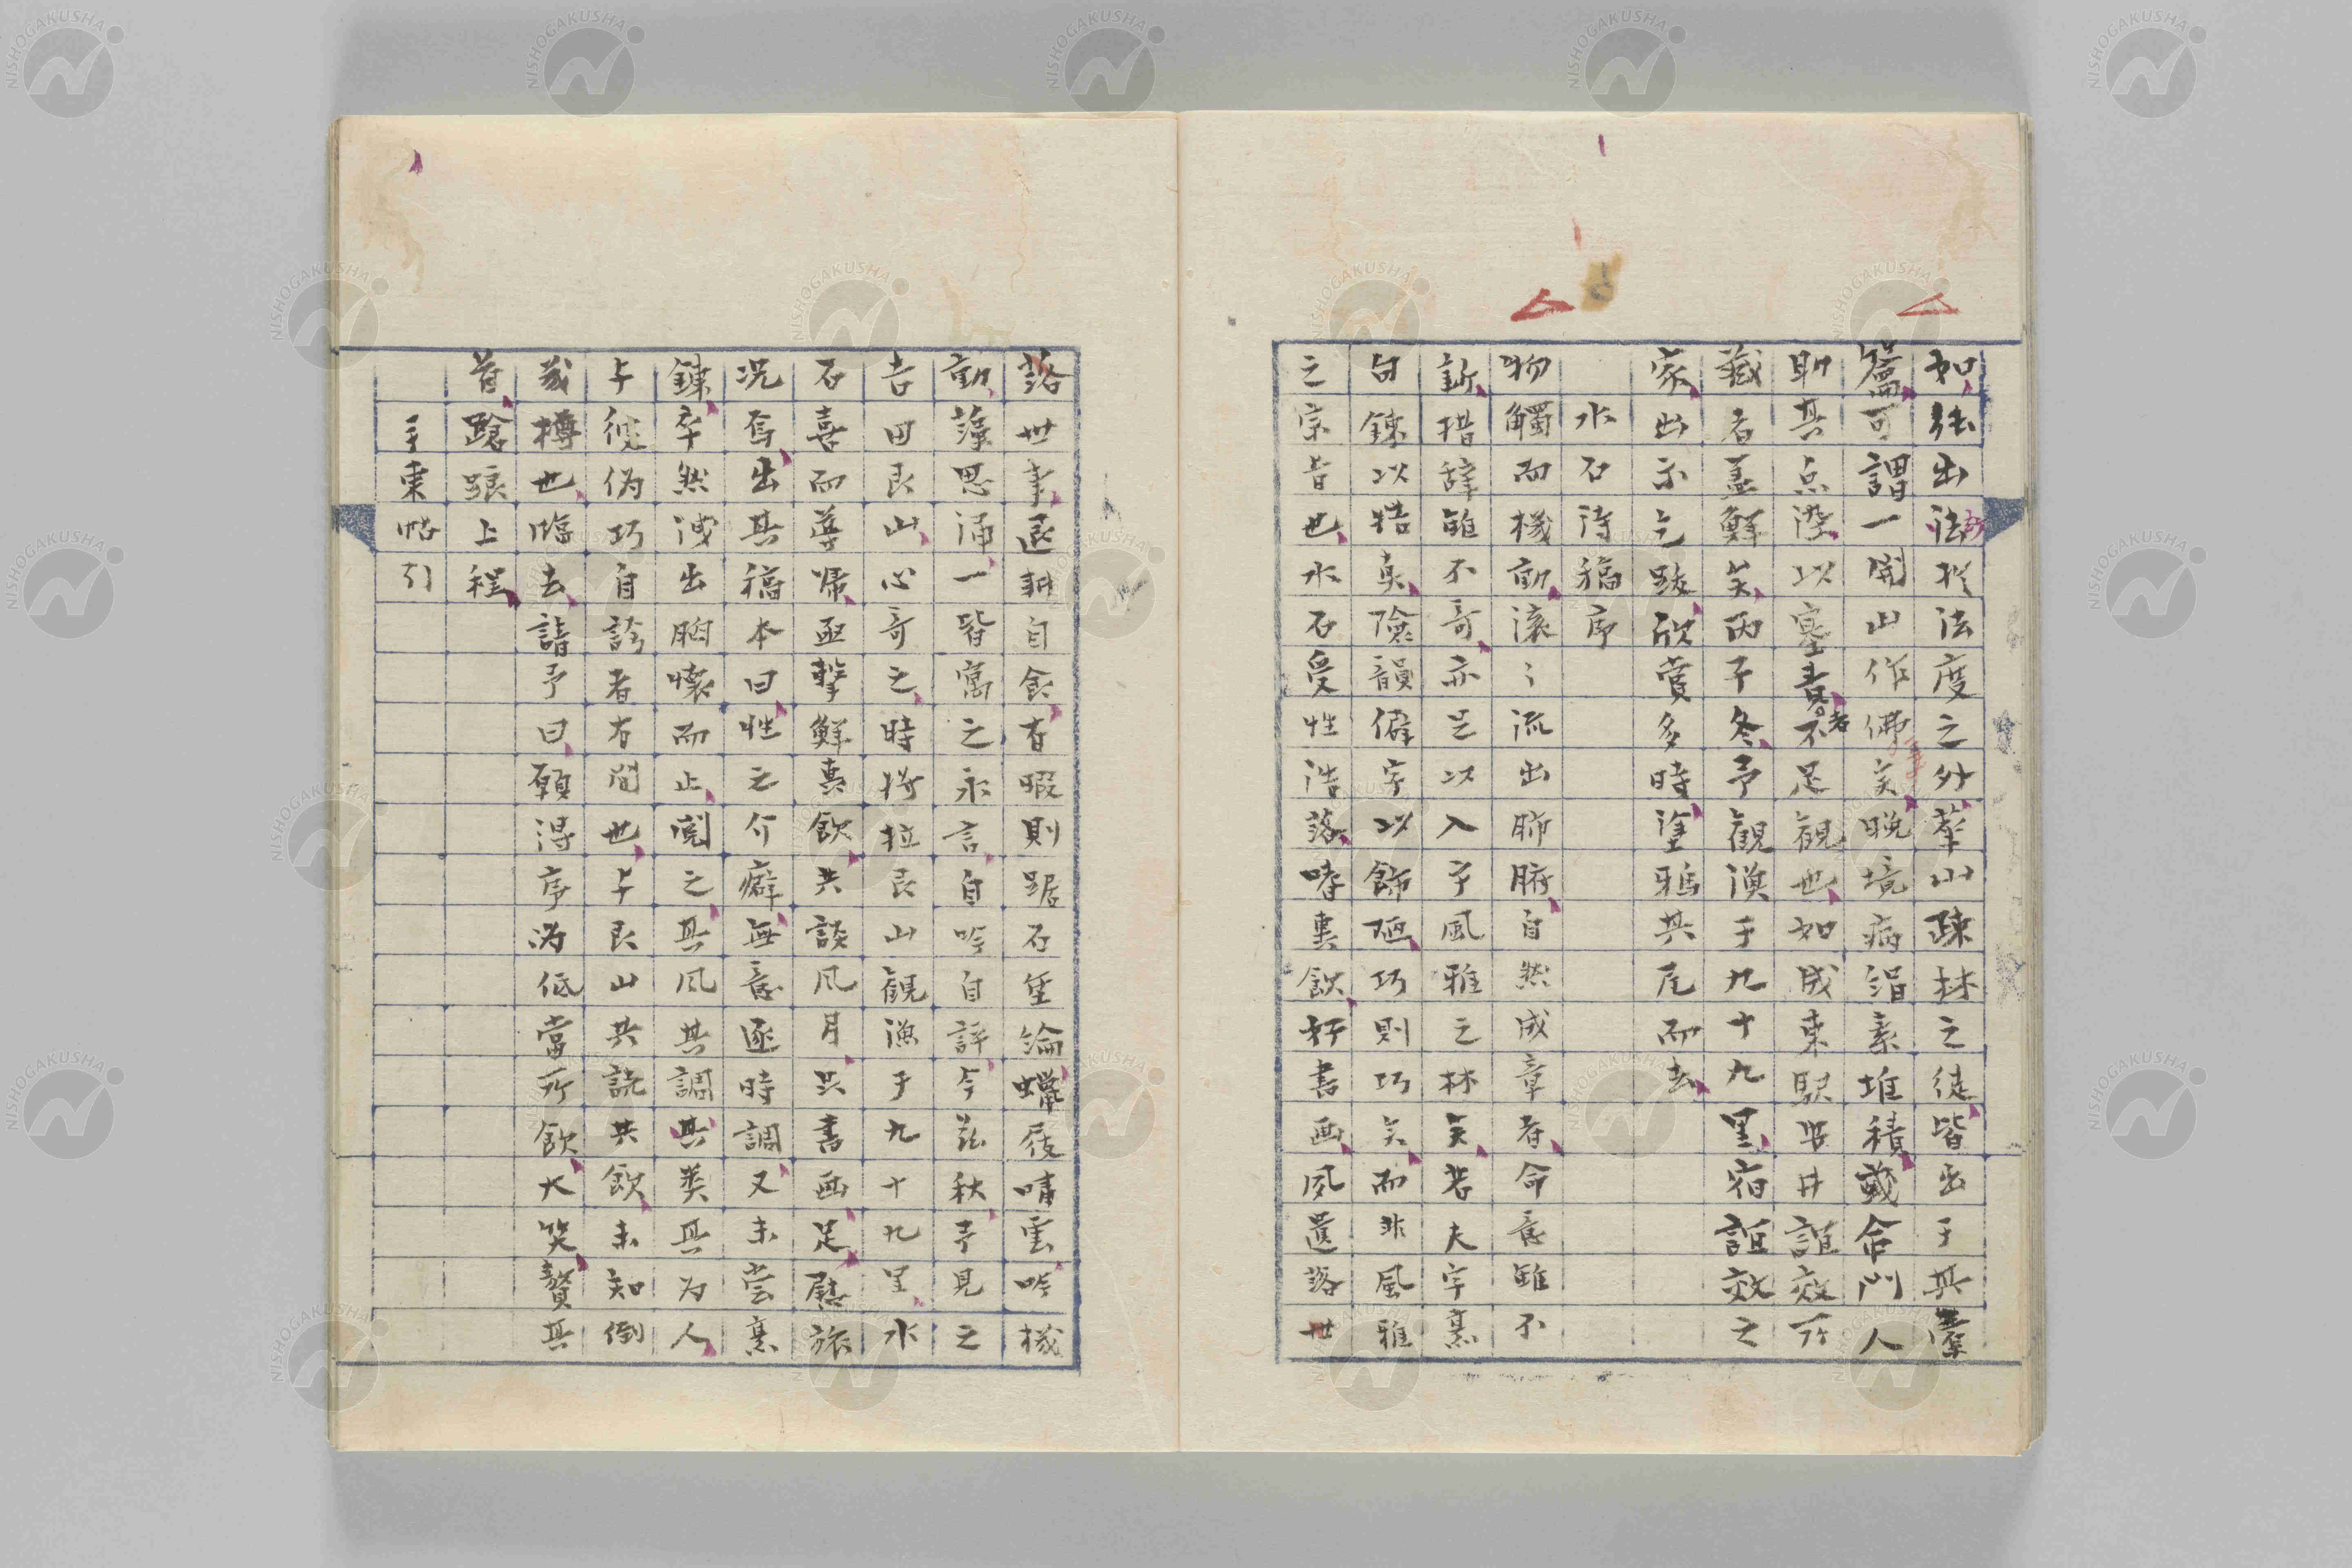 如法出法於法度之外華山疎林之徒皆出于其
可謂一開山作佛矣晩境病絹素堆積戯命門人
助其点染以塞責者不足觀也如成東駅畳井諠效所
藏者蓋鮮矣丙子冬予觀漁于九十九里宿諠效之
家出示之跋欣賞多時塗鴉其尾而去
水石詩稿序
物觸而機動滾々流出肺腑自然成章者命意雖不
新措辞雖不奇亦足以入于風雅之林矣若夫字烹
句錬以牿真險韻僻字以飾陋巧則巧矣而非風雅
之宗旨也水石受性浩落嗜裏飲好書画夙遺落世
落世事退耕自食有暇則踞石垂綸蠟屐嘯雲吟機
動藻思涌一皆寓之永言自吟自評今茲秋予見之
吉田良山心奇之時将拉良山觀漁于九十九里水
石喜而導帰亟撃鮮裏飲共談風月共書画足慰旅
況焉出其稿本曰性之介癖無意逐時調又未嘗烹
錬卒然洩出胸懐而止閲之其風其調其类其为人
与彼偽巧自誇者有間也与良山共読共飲未知倒
幾樽也臨去請予曰願得序為低當所飲大笑贅其
首蹌踉上程
手東帖引